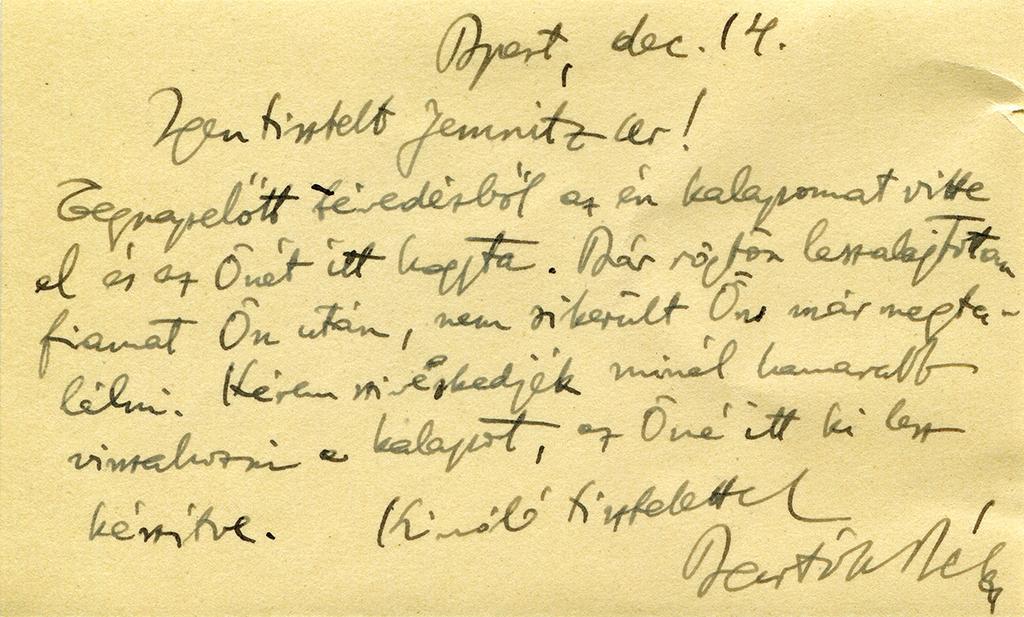 Bpest, dec. 14.
Igen tisztelt Jemnitz úr!
Tegnapelőtt tévedésből az én kalapomat vitte
el és az Önét itt hagyta. Bár rögtön lesza­lajtottam
fiamat Ön után, nem sikerült Önt már megta-
lálni. Kérem sziveskedjék minél hamarabb
visszahozni a kalapot, az Öné itt ki lesz
készitve. Kiváló tisztelettel
Bartók Béla